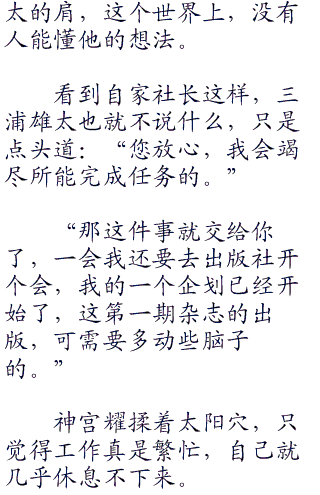 太的肩，这个世界上，没有
人能懂他的想法。
看到自家社长这样，三
浦雄太也就不说什么，只是
点头道：“您放心，我会竭
尽所能完成任务的。”
“那这件事就交给你
了，一会我还要去出版社开
个会，我的一个企划已经开
始了，这第一期杂志的出
版，可需要多动些脑子
的。”
神宫耀揉着太阳穴，只
觉得工作真是繁忙，自己就
几乎休息不下来。